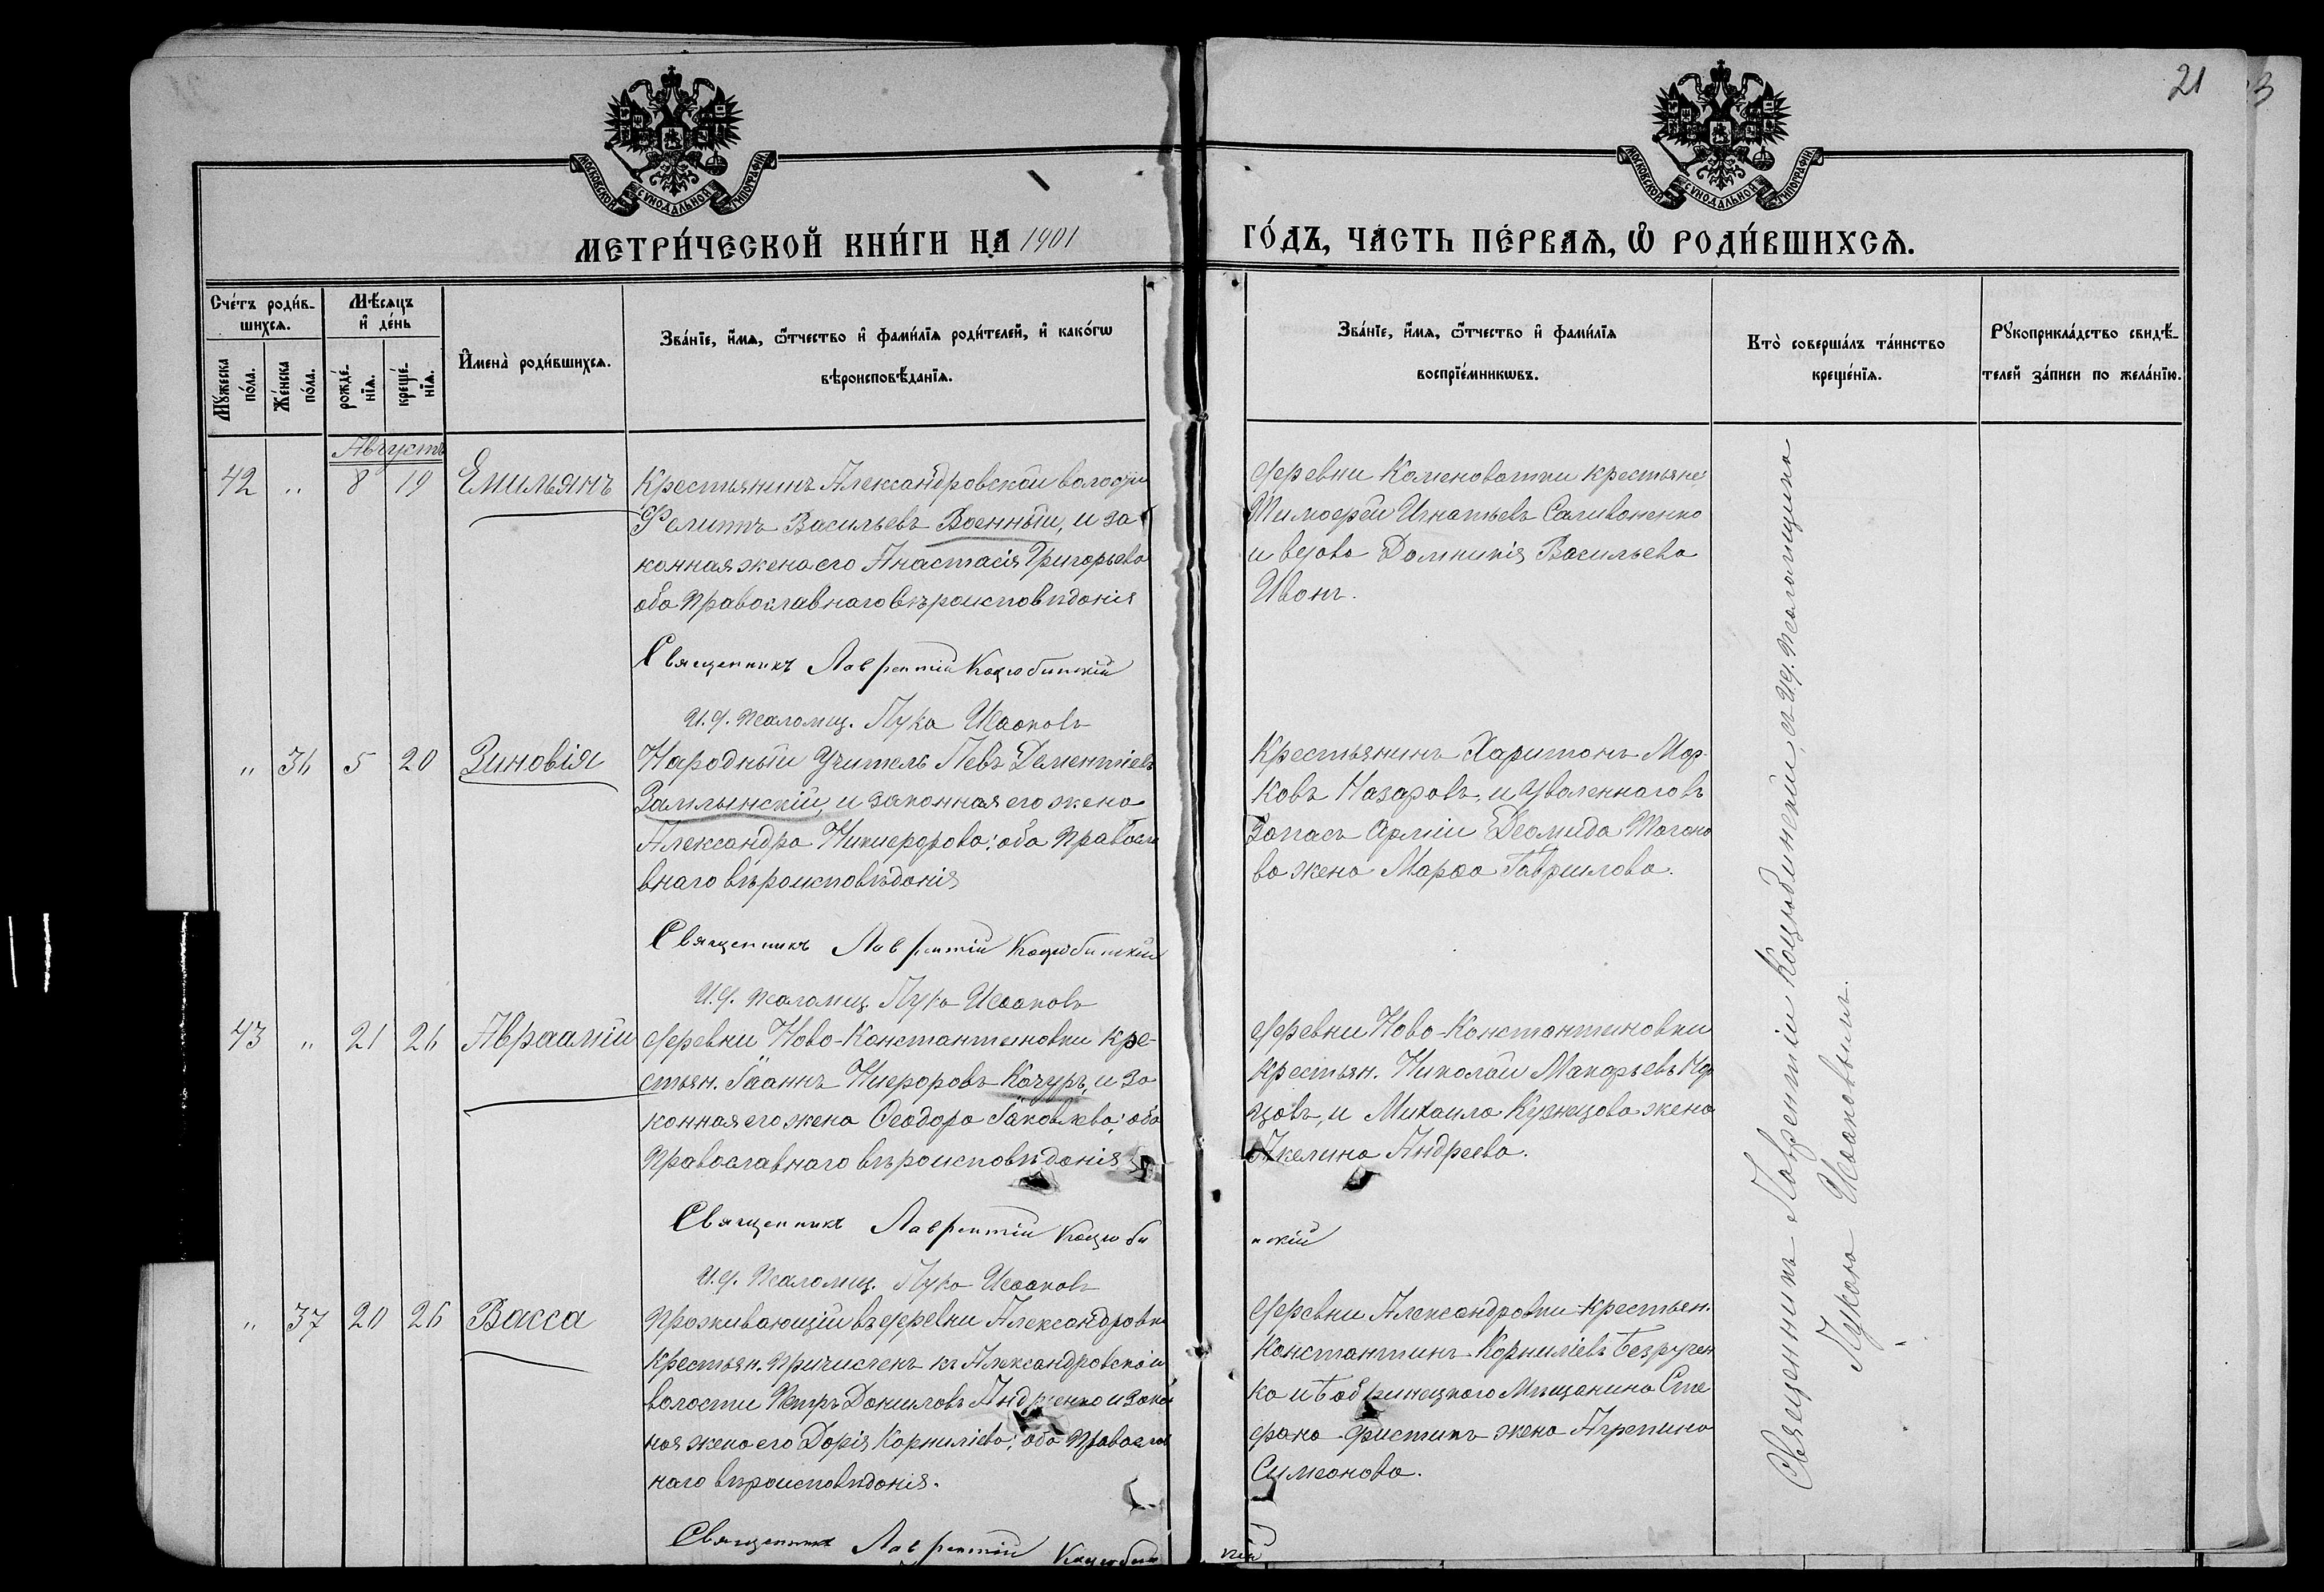 21
МОСКОВСКОЙ СѴНОДАЛЬНОЙ ТИПОГРАФІИ.
МОСКОВСКОЙ СѴНОДАЛЬНОЙ ТИПОГРАФІИ.
МЕТРИ́ЧЕСКОЙ КНИ́ГИ НА 1901 ГО́ДЪ, ЧА́СТЬ ПЕ́РВАѦ, Ѡ҆ РОДИ́ВШИХСѦ.
Сче́тъ роди́в-
шихсѧ.
Мꙋ́жеска
по́ла.
Же́нска
по́ла.
Мѣ́сѧцъ
и҆ де́нь
рожде́-
нїѧ.
креще́-
нїѧ.
И҆мена̀ роди́вшихсѧ.
Зва́нїе, и҆́мѧ, ѻ҆́тчество и҆ фамѝлїѧ роди́телей, и҆ како́гѡ
вѣроисповѣ́данїѧ.
Зва́нїе, и҆́мѧ, ѻ҆́тчество и҆ фамѝлїѧ
воспрїе́мникѡвъ.
Кто̀ соверша́лъ та́инство
креще́нїѧ.
Рꙋкоприкла́дство свидѣ́-
телей за́писи по жела́нїю.
Августъ
42 „ 8 19 Емильянъ
Крестьянинъ Александровской волости
Филиппъ Васильевъ Военный, и за
конная жена его Анастасія Григорьева
оба Православнаго вѣроисповѣданія
Священникъ Лаврентій Коцюбинскій
И. д. псаломщ. Лука Исааковъ
деревни Каменоватки крестьяне
Тимофей Игнатьевъ Саливоненко
и вдова Домникія Васильева
Ивонъ.
„ 36 5 20 Зиновія
Народный Учитель Левъ Дементіевъ
Замлынскій, и законная его жена
Александра Никифорова; оба Правосла
внаго вѣроисповѣданія
Священникъ Лаврентій Коцюбинскій
И. д. псаломщ. Лука Исааковъ
Крестьянинъ Харитонъ Мар-
ковъ Назаровъ, и Уволеннаго въ
Запасъ Арміи Деомида Тагано
ва жена Марѳа Гаврилова.
43 „ 21 26 Авраамій
деревни Ново-Константиновки кре-
стьян. Іоаннъ Никифоровъ Качуръ, и за
конная его жена Ѳеодора Іаковлева; оба
Православнаго вѣроисповѣданія
Священникъ Лаврентій Коцюби
нскій
И. д. псаломщ. Лука Исааковъ
деревни Ново-Константиновки
крестьян. Николай Макарьевъ
и Михаила Кузнецова жена
Акелина Андреева.
„ 37 20 26 Васса
Проживающій въ деревни Александровки
крестьян. причисленъ къ Александровской
волости Петръ Даниловъ Андріенко и закон
ная жена его Дарія Корниліева; оба Православ
наго вѣроисповѣданія.
Священникъ Лаврентій Коцюбин
скій
деревни Александровки крестьян.
Константинъ Корниліевъ Безручен
ко и Бобринецкаго Мѣщанина Сте
фана жена Агрепина
Симеонова.
Священникъ Лаврентій Коцюбинскій, съ И. д. псаломщика
Лукою Исааковымъ.